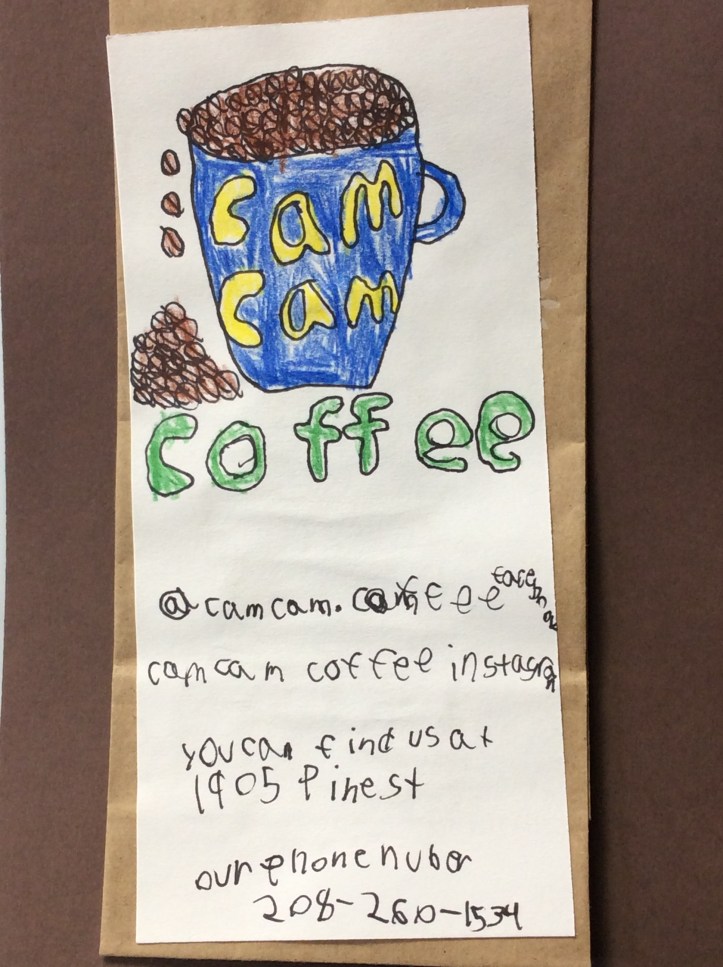 cam
cam
coffee
@camcam.
camcam coffee instagram
you can find us at
1905 Pine st
our phone nuber
208-260-1534